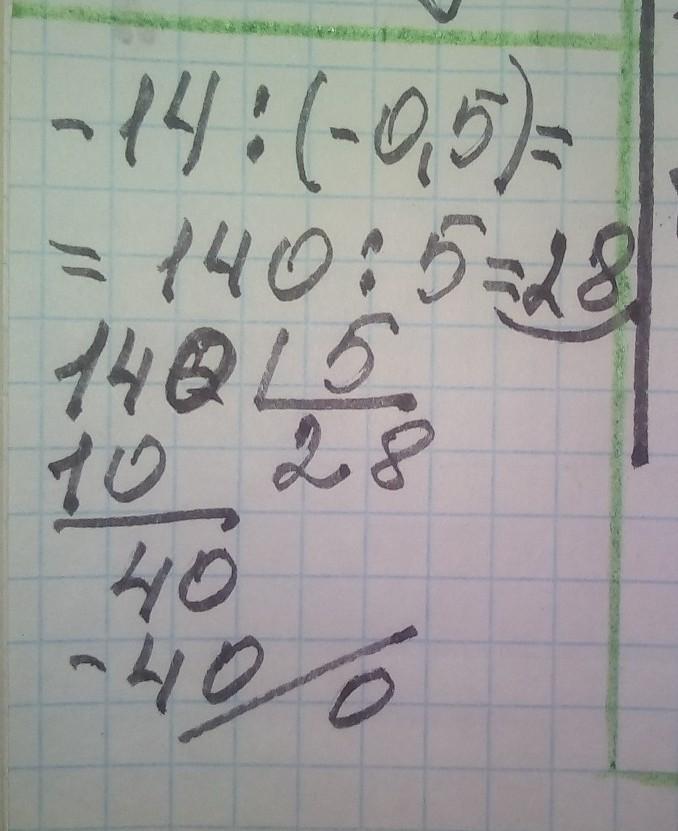 -14:(-0,5)=
=140:5=28
140 5
10 28
40
-40
0